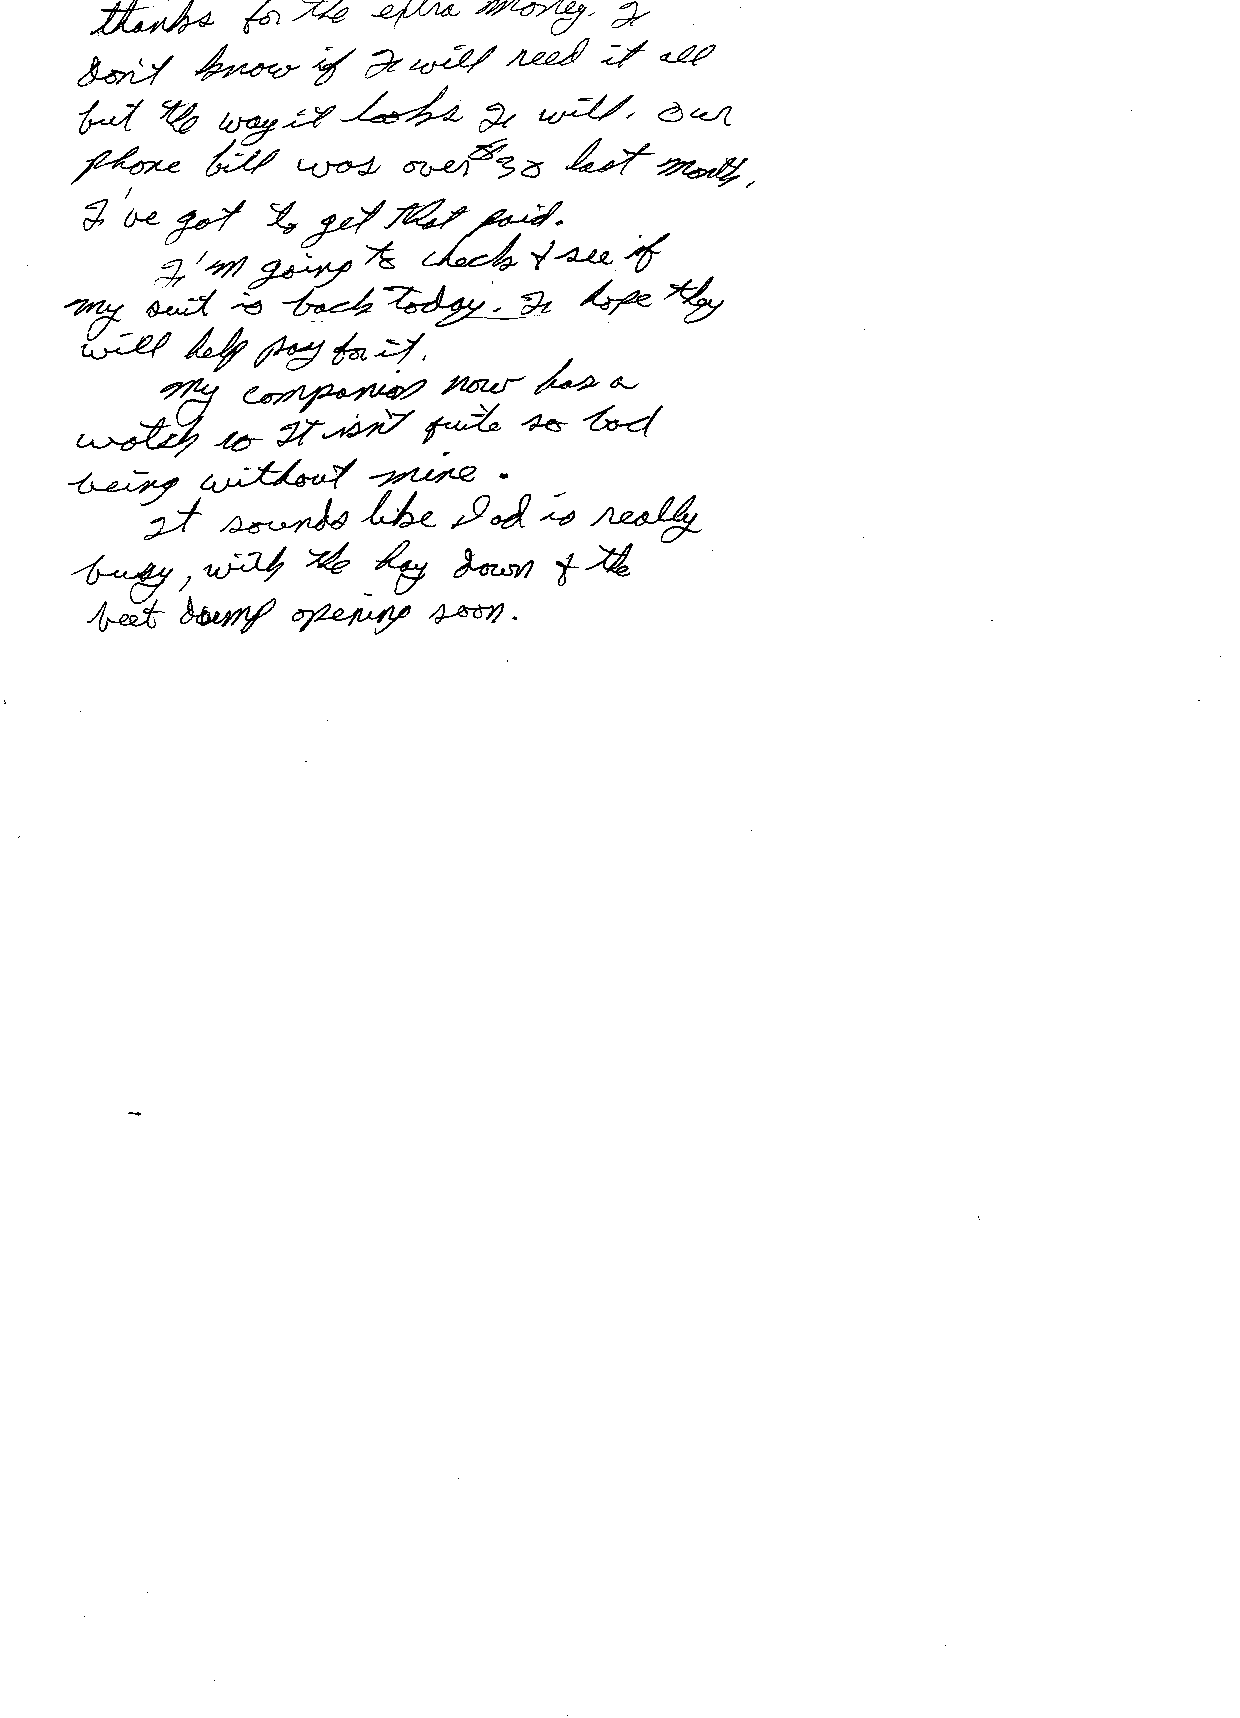 thanks for the extra money. I
don't know if I will need it all
but the way it looks I will. Our
phone bill was over $30 last month.
I've got to get that paid.
I'm going to check & see if
my suit is back today. I hope they
will help pay for it.
My companion now has a
watch so It isn't quite so bad
being without mine.
It sounds like Dad is really
busy, with the hay down & the
beet dump opening soon.